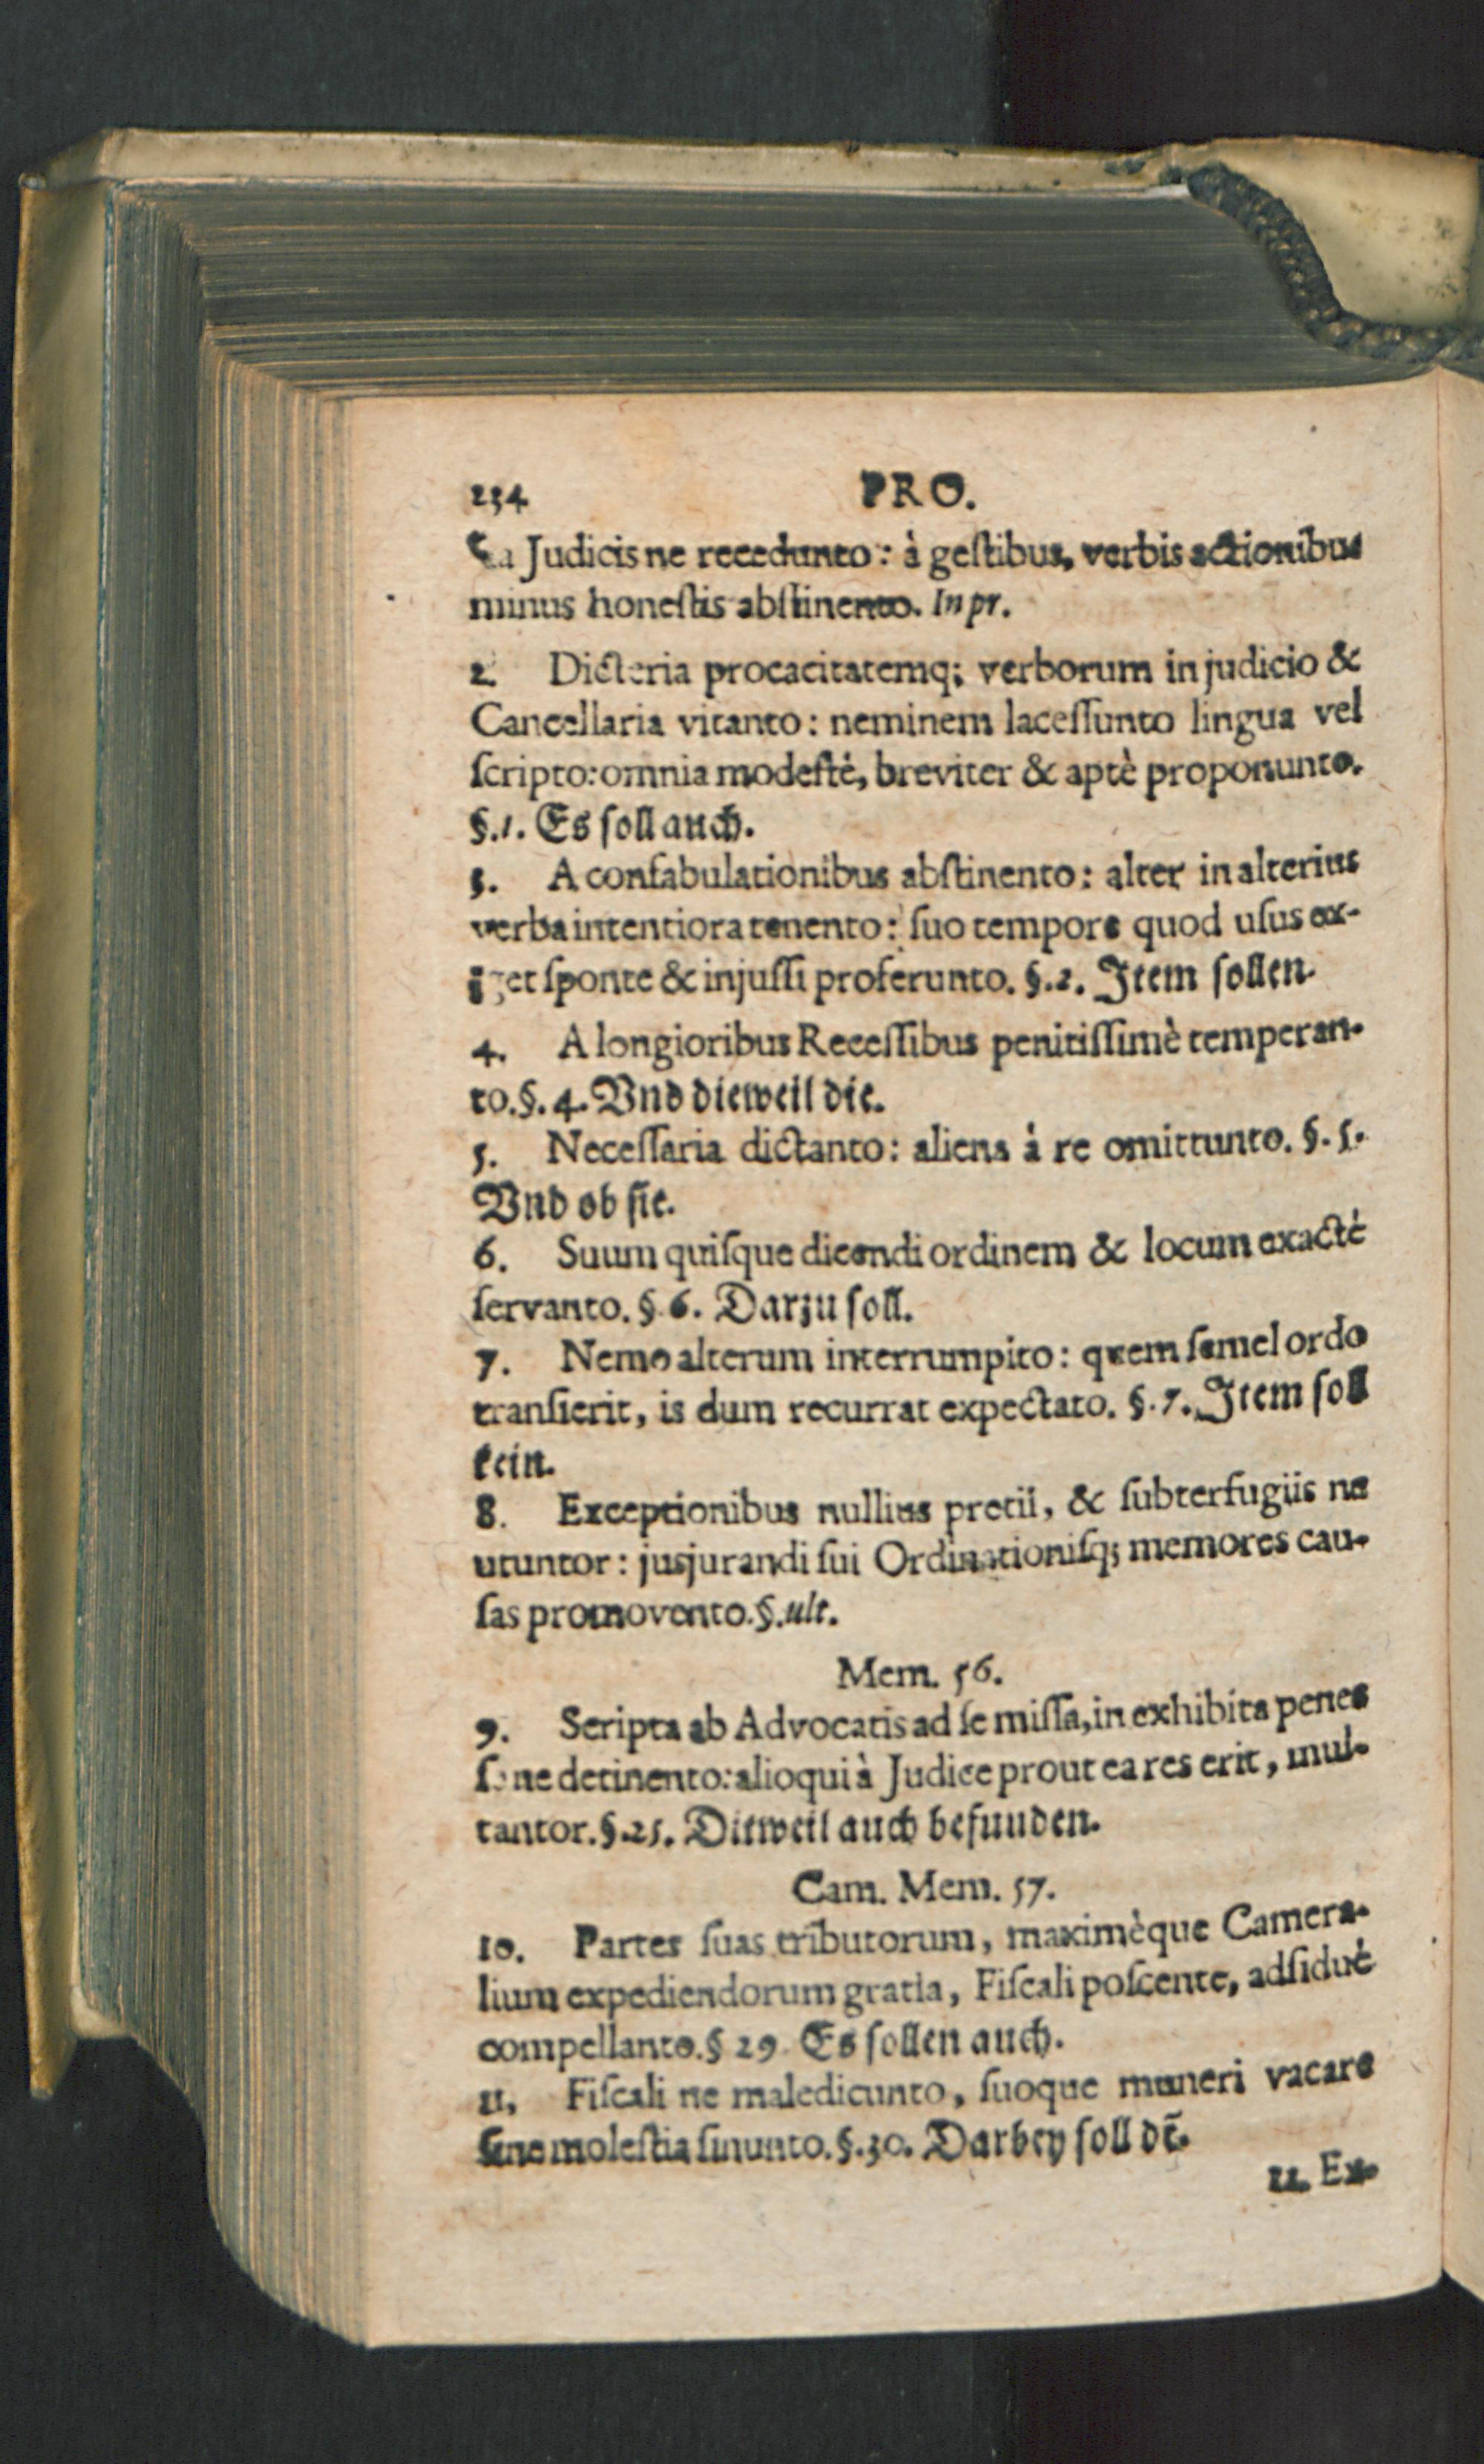 234 PRO.
ta Judicis ne recedunto: à geſtibus, verbis actionibus
minus honeſtis abſtinento. In pr.
2 Dicteria procacitatemq; verborum in judicio &
Cancellaria vitanto: neminem laceſſunto lingua vel
ſcripto: omnia modeſtè, breviter & aptè proponunto.
§.1. Es ſoll auch.
3. A confabulationibus abſtinento: alter in alterius
verba intentiora tenento: ſuo tempore quod uſus ex-
iget ſponte & injuſſi proferunto. §.2. Item ſollen.
4. A longioribus Receſſibus penitiſſimè temperan-
to. §. 4. Vnd dieweil die.
5. Neceſſaria dictanto: aliena à re omittunto. §. 5.
Vnd ob ſie.
6. Suum quiſque dicendi ordinem & locum exactè
ſervanto. § 6. Darzu ſoll.
7. Nemo alterum interrumpito: quem ſemel ordo
tranſierit, is dum recurrat expectato. §. 7. Item ſoll
kein.
8. Exceptionibus nullius pretii, & ſubterfugiis ne
utuntor: jusjurandi ſui Ordinationiſq; memores cau-
ſas promovento. §. ult.
Mem. 56.
9. Scripta ab Advocatis ad ſe miſſa, in exhibita penes
ſe ne detinento: alioqui à Judice prout ea res erit, mul-
tantor. §.25. Ditweil auch befuuden.
Cam. Mem. 57.
10. Partes ſuas tributorum, maximèque Camera-
lium expediendorum gratia, Fiſcali poſcente, adſiduè
compellanto. § 29. Es ſollen auch.
11. Fiſcali ne maledicunto, ſuoque muneri vacare
ſine moleſtia ſinunto. §.30. Darbey ſoll dē.
12. Ex-